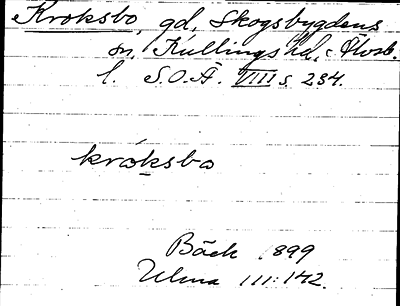 Kroksbo, gd, Skogsbygdens
sn, Kullings hd, Älvsb.
l. S.O.Ä. VIII s 234.
króksbo
Bäck 1899
Ulma 111:142.